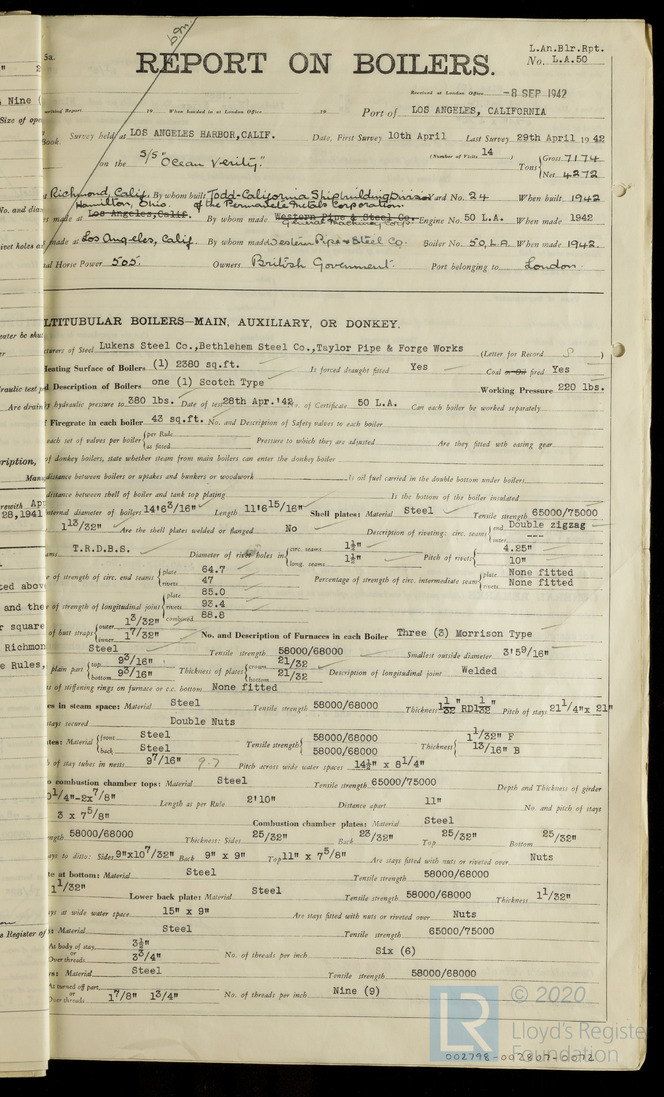 b.m.
5a.
REPORT ON BOILERS.
L.An.Blr.Rpt.
No. L.A.50
Received at London Office -8 SEP 1942
writing Report 19 When handed in at London Office 19 Port of LOS ANGELES, CALIFORNIA
Survey held at LOS ANGELES HARBOR, CALIF. Date, First Survey 10th April Last Survey 29th April 1942
Book.
(Number of Visits 14)
on the S/S "Ocean Verity." Tons {Gross 7174
Net 4272
at Richmond, Calif. By whom built Todd-California Shipbuilding Division Yard No. 24 When built 1942
of the Permanente Metals Corporation.
Hamilton, Ohio.
es made at Los Angeles, Calif. By whom made Western Pipe & Steel Co. Engine No. 50 L.A. When made 1942
General Machinery Corp.
made at Los Angeles, Calif. By whom made Western Pipe & Steel Co. Boiler No. 50, L.A When made 1942.
al Horse Power 505. Owners British Government. Port belonging to London
LTITUBULAR BOILERS—MAIN, AUXILIARY, OR DONKEY.
cturers of Steel Lukens Steel Co.,Bethlehem Steel Co.,Taylor Pipe & Forge Works (Letter for Record S)
Heating Surface of Boilers (1) 2380 sq.ft. Is forced draught fitted Yes Coal or Oil fired Yes
d Description of Boilers one (1) Scotch Type Working Pressure 220 lbs.
by hydraulic pressure to 380 lbs. Date of test 28th Apr.'42 No. of Certificate 50 L.A. Can each boiler be worked separately
f Firegrate in each boiler 43 sq.ft. No. and Description of Safety valves to each boiler
each set of valves per boiler {per Rule
as fitted Pressure to which they are adjusted Are they fitted with easing gear
of donkey boilers, state whether steam from main boilers can enter the donkey boiler
distance between boilers or uptakes and bunkers or woodwork Is oil fuel carried in the double bottom under boilers
distance between shell of boiler and tank top plating Is the bottom of the boiler insulated
internal diameter of boilers 14'6 3/16" Length 11'6 15/16" Shell plates: Material Steel Tensile strength 65000/75000
1 13/32" Are the shell plates welded or flanged No Description of riveting: circ. seams {end Double zigzag
inter. ---
ams T.R.D.B.S. Diameter of rivet holes in {circ. seams 1½"
long. seams 1½" Pitch of rivets {4.25"
10"
e of strength of circ. end seams {plate 64.7
rivets 47 Percentage of strength of circ. intermediate seam {plate None fitted
rivets None fitted
e of strength of longitudinal joint {plate 85.0
rivets 93.4
combined 88.8
of butt straps {outer 1 3/32"
inner 1 7/32" No. and Description of Furnaces in each Boiler Three (3) Morrison Type
Steel Tensile strength 58000/68000 Smallest outside diameter 3'5 9/16"
plain part {top 9 3/16"
bottom 9 3/16" Thickness of plates {crown 21/32
bottom 21/32 Description of longitudinal joint Welded
s of stiffening rings on furnace or c.c. bottom None fitted
es in steam space: Material Steel Tensile strength 58000/68000 Thickness 1 1/32 RD 1 1/32 Pitch of stays 21¼"x 21"
stays secured Double Nuts
tes: Material {front Steel
back Steel Tensile strength {58000/68000
58000/68000 Thickness {1 1/32" F
13/16" B
h of stay tubes in nests 9 7/16" 9.7 Pitch across wide water spaces 14½" x 8¼"
o combustion chamber tops: Material Steel Tensile strength 65000/75000 Depth and Thickness of girder
0¼"-2x7/8" Length as per Rule 2'10" Distance apart 11" No. and pitch of stays
3 x 7 5/8" Combustion chamber plates: Material Steel
ength 58000/68000 Thickness: Sides 25/32" Back 23/32" Top 25/32" Bottom 25/32"
ays to ditto: Sides 9"x10 7/32" Back 9" x 9" Top 11" x 7 5/8" Are stays fitted with nuts or riveted over Nuts
te at bottom: Material Steel Tensile strength 58000/68000
1 1/32" Lower back plate: Material Steel Tensile strength 58000/68000 Thickness 1 1/32"
ays at wide water space 15" x 9" Are stays fitted with nuts or riveted over Nuts
s: Material Steel Tensile strength 65000/75000
At body of stay, 3½"
or
Over threads 3 3/4" No. of threads per inch Six (6)
s: Material Steel Tensile strength 58000/68000
At turned off part,
or
Over threads 1 7/8" 1 3/4" No. of threads per inch Nine (9)
LR
© 2020
Lloyd's Register
Foundation
002798-002807-0072